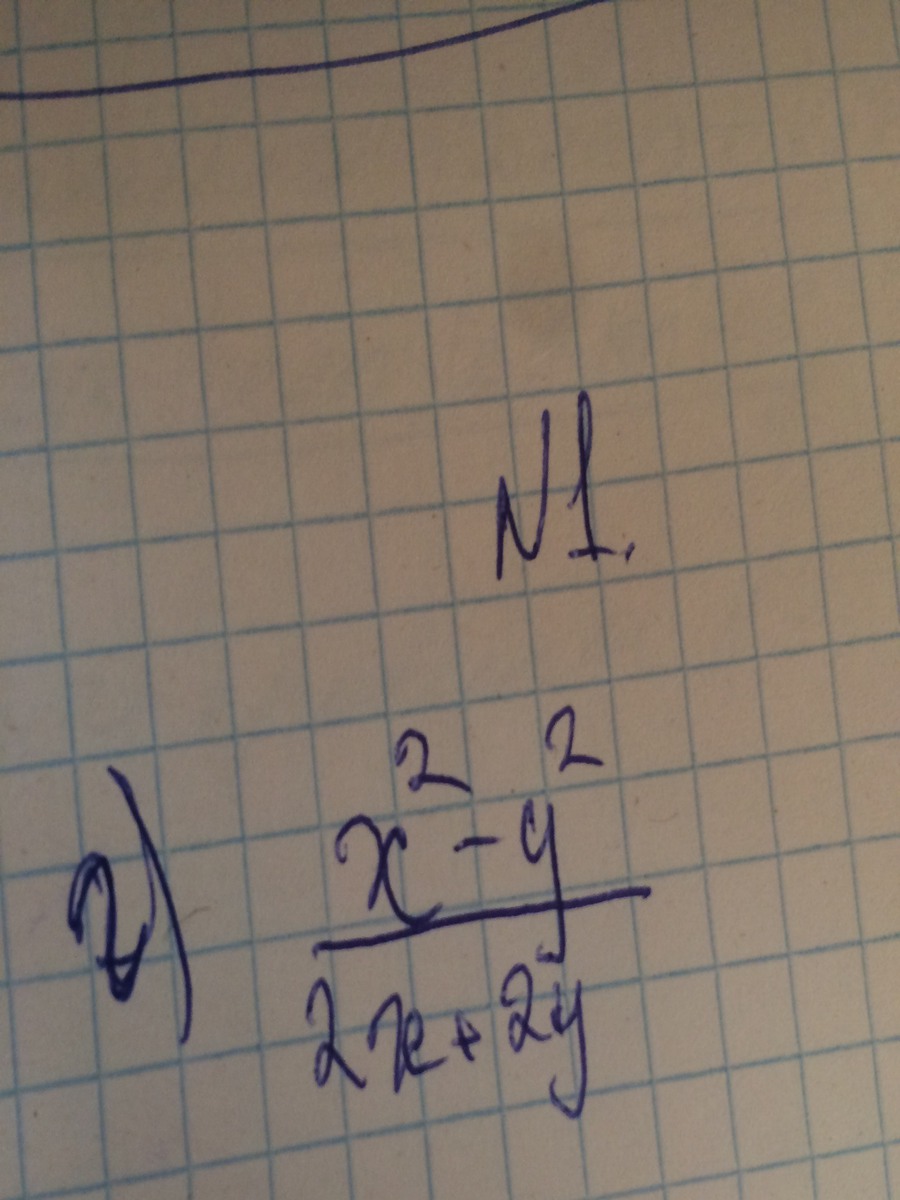 N1.
2) x² - y²
2x + 2y